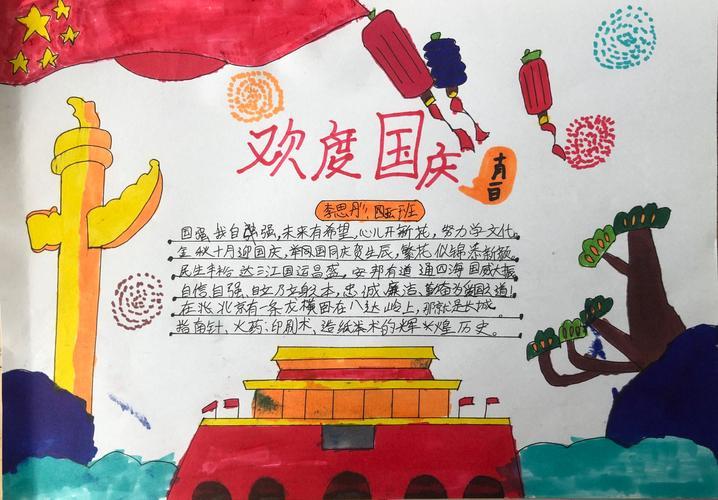 欢度国庆
十月一日
李思彤 四五班
国强我自强,未来有希望,心儿开新花,努力学文化。
金秋十月迎国庆,举网国同庆贺生辰,繁花似锦添新颜。
民生丰裕达三江国运昌盛,安邦有道通四海国威大振
自信自强、自立 为本,忠诚廉洁、勤奋为
在北北京有一条龙横西在八达岭上,那就是长城。
指南针、火药、印刷术、造纸术的辉煌历史。